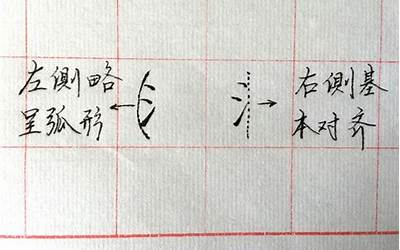 左侧略
呈弧形
右侧基
本对齐